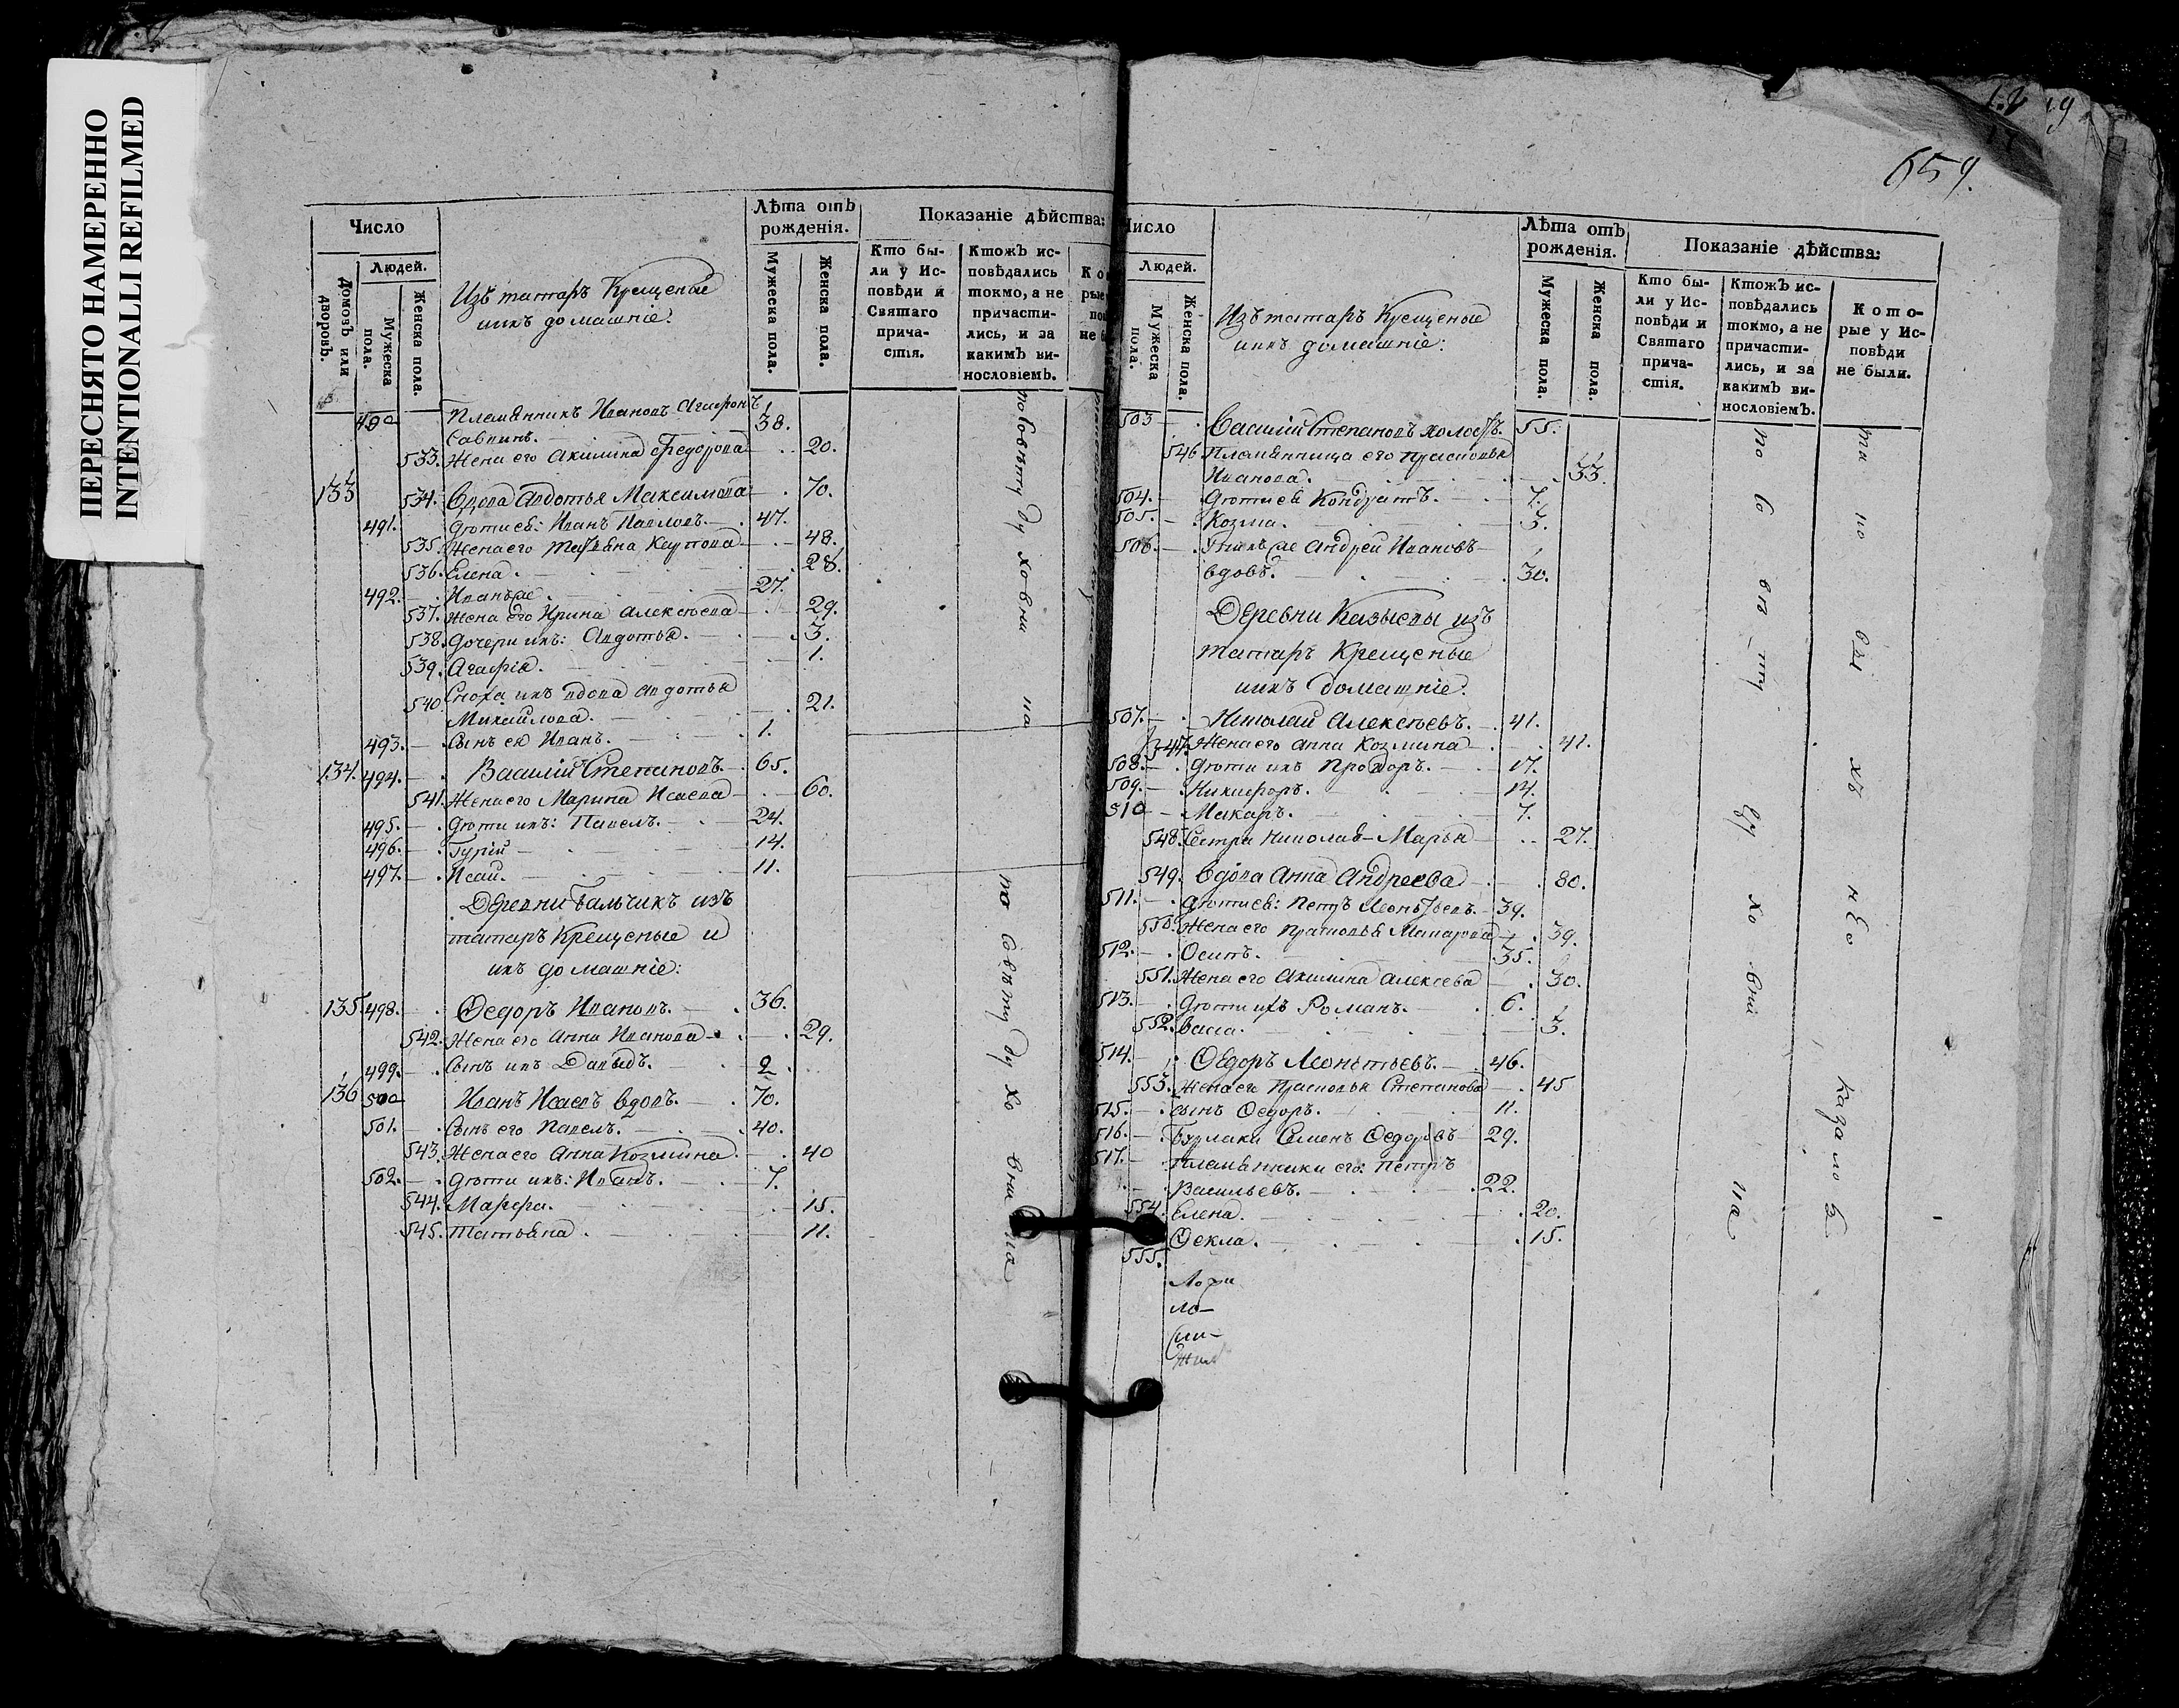 ПЕРЕСНЯТО НАМЕРЕННО
INTENTIONALLI REFILMED
Число
Людей.
Домовъ или дворовъ.
Мужеска пола.
Женска пола.
Изъ татаръ Крещеные
ихъ домашніе:
Лѣта отъ рожденія.
Мужеска пола.
Женска пола.
Показаніе дѣйства:
Кто бы-
ли у Ис-
повѣди и
Святаго
прича-
стія.
Ктожъ ис-
повѣдались
токмо, а не
причасти-
лись, и за
какимъ ви-
нословіемъ.
Племянникъ Ивановъ Агафонъ
Саввинъ. 38.
533. Жена его Акилина Федорова 20.
133 534. Вдова Авдотья Максимова 70.
491. Дѣти ея: Иванъ Павловъ. 47.
535. Жена его Татьяна Карпова 48.
536. Елена. 28.
492. Иванъ же. 27.
537. Жена его Ирина Алексѣева 29.
538. Дочери ихъ: Авдотья. 3.
539. Агафія. 1.
540. Сноха ихъ вдова Авдотья
Михайлова. 21.
493. Сынъ ея Иванъ. 1.
134. 494. Василій Степановъ. 65.
541. Жена его Марина Исаева 60.
495. Дѣти ихъ: Павелъ. 24.
496. Гурій 14.
497. Исай. 11.
Деревни Бальчикъ изъ
татаръ Крещеные и
ихъ домашніе:
135. 498. Ѳедоръ Ивановъ. 36.
542. Жена его Анна Иванова 29.
499. Сынъ ихъ Давыдъ. 2
136 500 Иванъ Исаевъ вдовъ. 70.
501. Сынъ его Павелъ. 40.
543. Жена его Анна Козмина. 40
502. Дѣти ихъ: Иванъ. 7.
544. Марфа. 15.
545. Татьяна. 11.
по совѣту духовни на
по совѣту духо вни на
659.
Число
Людей.
Мужеска пола.
Женска пола.
Изъ татаръ Крещеные
ихъ домашніе:
Лѣта отъ рожденія.
Мужеска пола.
Женска пола.
Показаніе дѣйства:
Кто бы-
ли у Ис-
повѣди и
Святаго
прича-
стія.
Ктожъ ис-
повѣдались
токмо, а не
причасти-
лись, и за
какимъ ви-
нословіемъ.
Кото-
рые у Ис-
повѣди
не были.
503 Василій Степановъ холостъ. 55.
546 Племянница его Прасковья
Иванова. 33.
504. Дѣти ея Кондратъ. 7.
505. Козма. 3.
506. Андрей Ивановъ
вдовъ. 30.
Деревни Казыевы изъ
татаръ Крещеные
ихъ домашніе:
507. Николай Алексѣевъ. 41.
547. Жена его Анна Козмина 41.
508. Дѣти ихъ Прохоръ. 17.
509. Никифоръ. 14.
510 Макаръ. 7.
548. Сестра Николая Марья 27.
549. Вдова Анна Андреева 80.
511. Дѣти ея: Петръ Леонтьевъ. 39.
550. Жена его Прасковья Макарова 39.
512. Осипъ. 35.
551. Жена его Акилина Алексеева 30.
513. Дѣти ихъ Романъ. 6.
552. Васса. 3.
514. Ѳедоръ Леонтьевъ. 46.
553. Жена его Прасковья Степанова 45
515. сынъ Ѳедоръ. 11.
516. Бурлаки Семенъ Ѳедоровъ 29.
517. Племянники его: Петръ
Васильевъ. 22.
554. Елена. 20.
555. Ѳекла. 15.
ло-